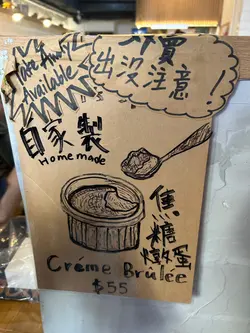 Take Away
Available
外賣
出沒注意！
自家製
Homemade
焦糖燉蛋
Créme Brûlée
$55